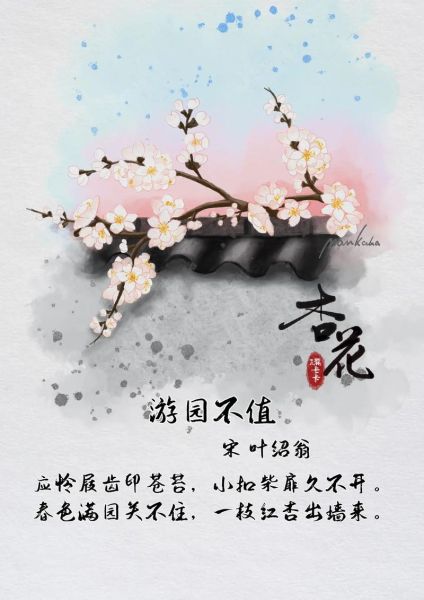 杏花
游园不值
宋 叶绍翁
应怜屐齿印苍苔，小扣柴扉久不开。
春色满园关不住，一枝红杏出墙来。